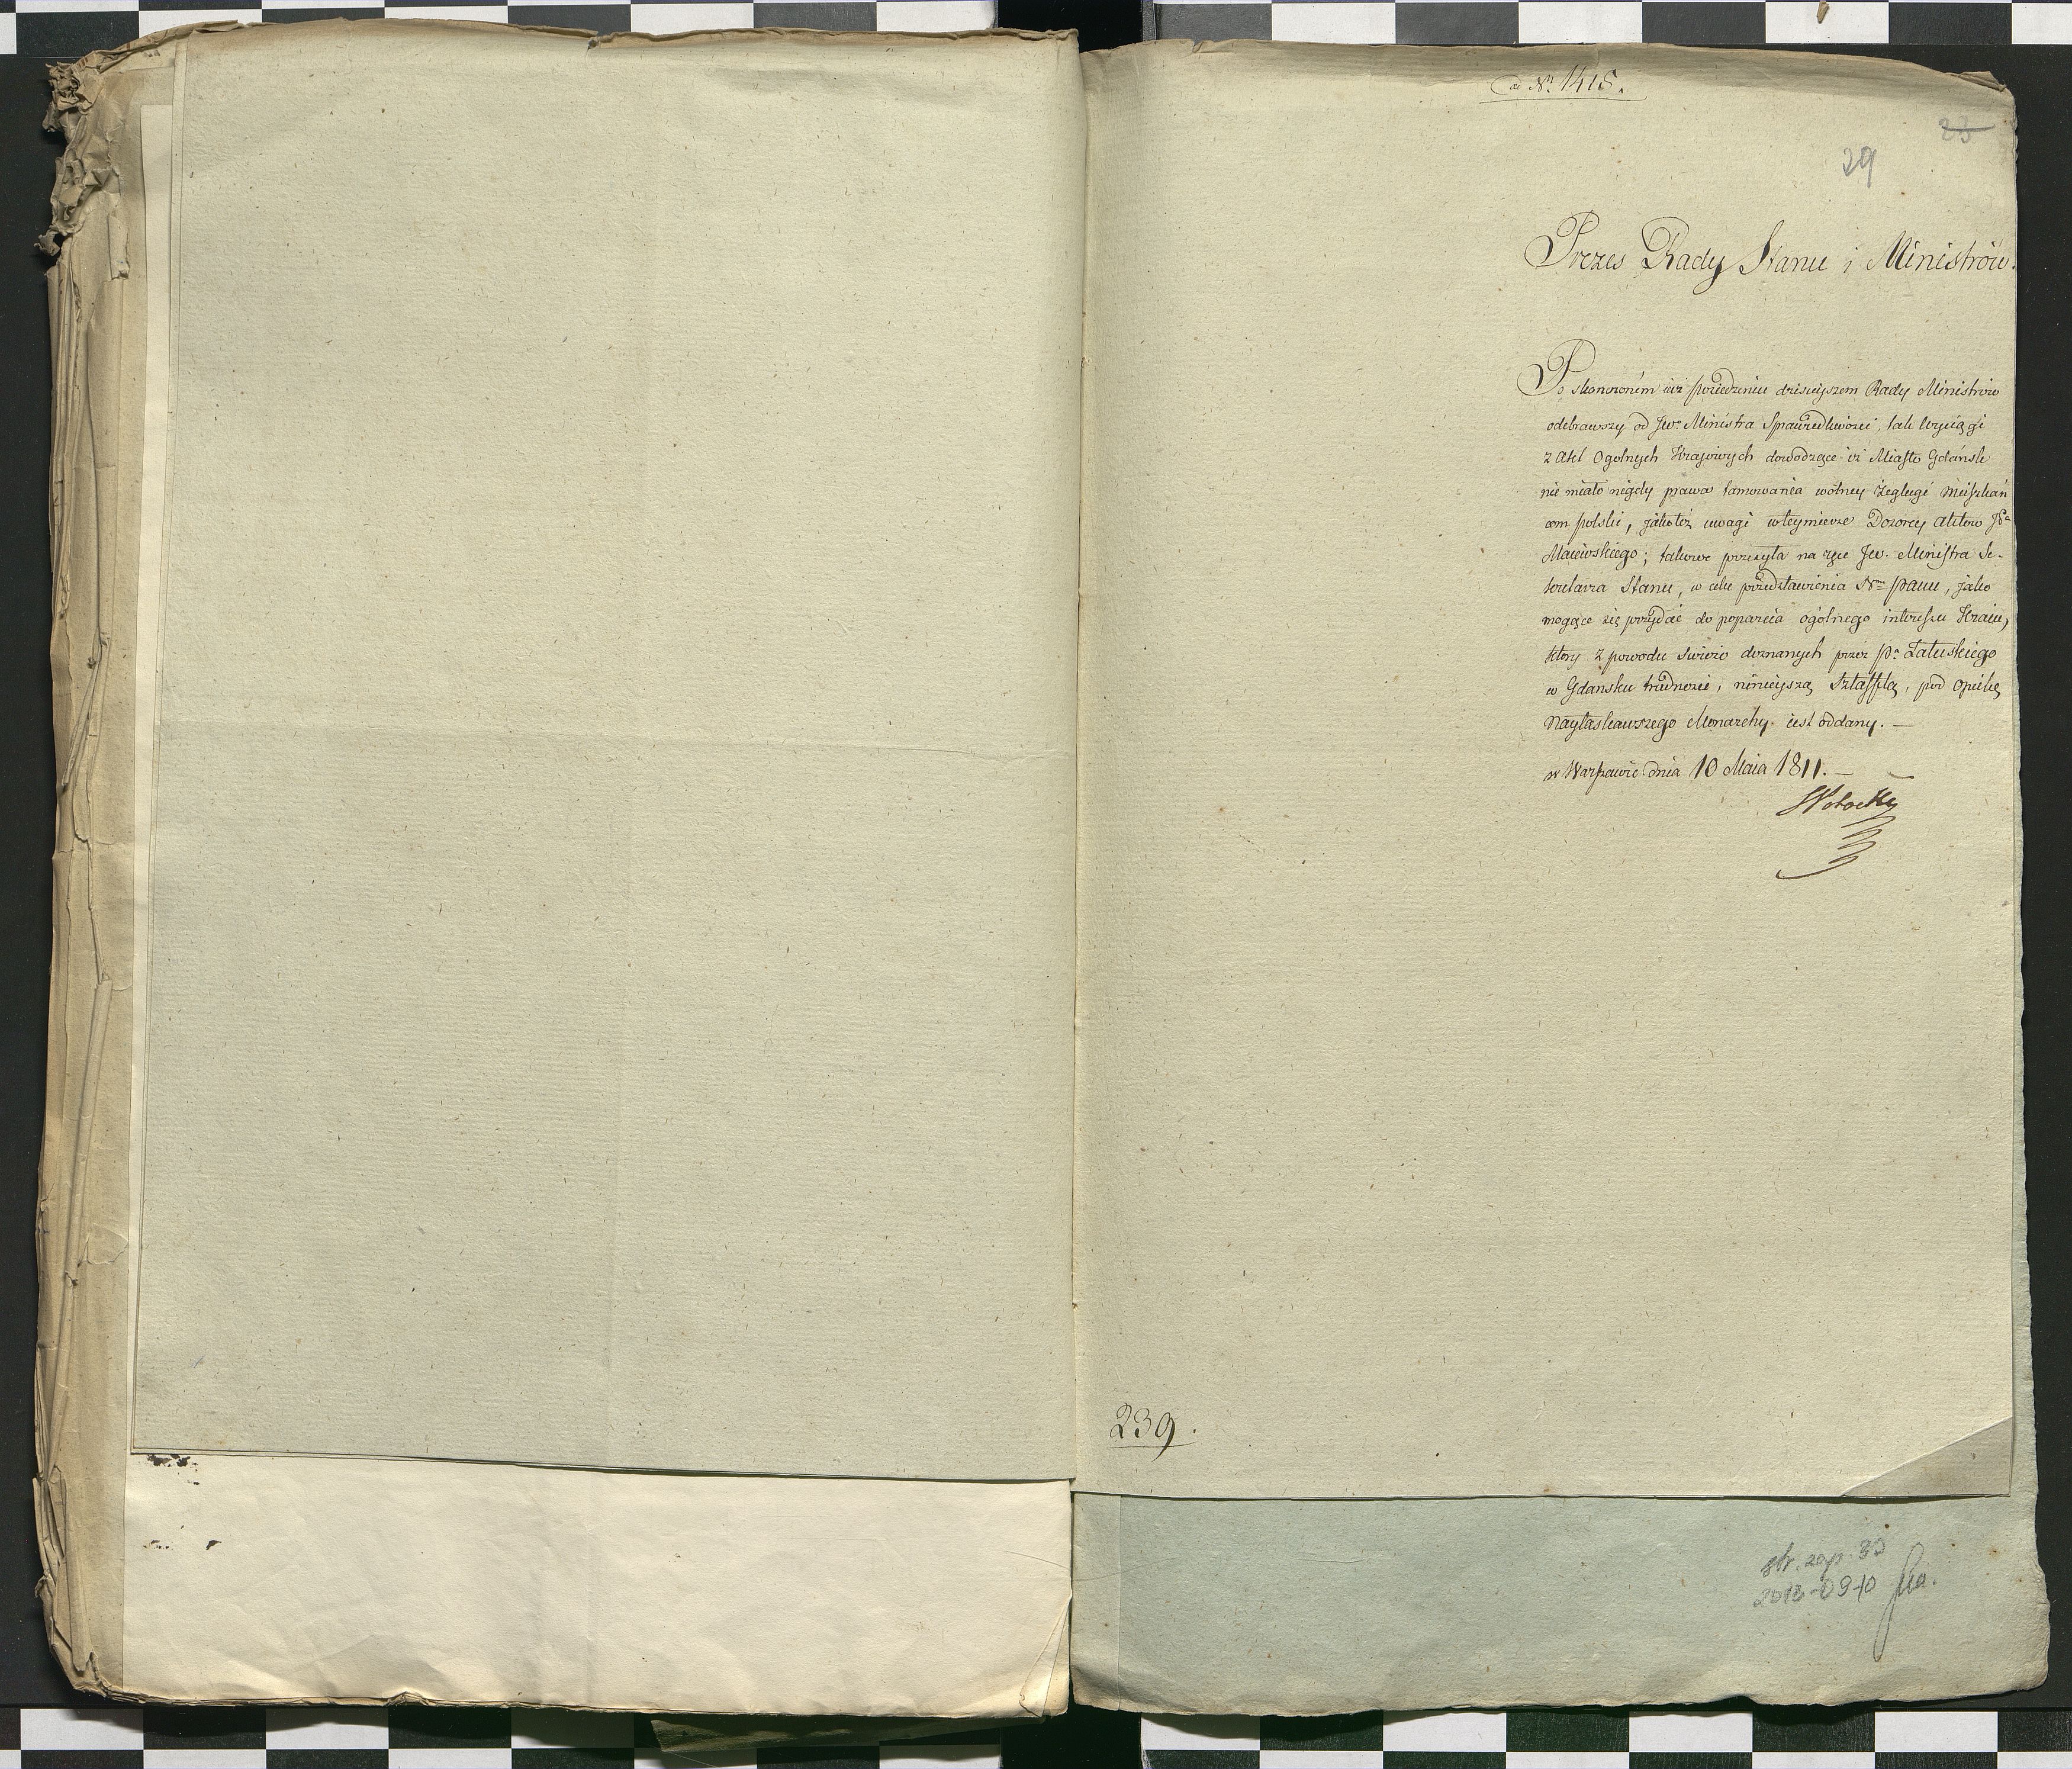 ad Nr. 1415.
23
29
Prezes Rady Stanu i Ministrów.
Po skonczoném iuż posiedzeniu dzisieyszem Rady Ministrów
odebrawszy od Jwo Ministra Sprawiedliwości, tak wyciągi
z Akt Ogolnych Kraiowych dowodzące iż Miasto Gdańsk
nie miało nigdy prawa tamowania wolney żeglugi Mieszkań
com polski, jakoteż uwagi wteymierze Dozorcy Aktow JPa
Maiewskiego; takowe przesyła na ręce Jw. Ministra Se-
kretarza Stanu, w celu przedstawienia Nmu panu, jako
mogące się przydać do poparcia ogólnego interessu Kraiu,
który z powodu swieżo doznanych przez Pa Załuskiego
w Gdansku trudności, ninieyszą Sztaffetą, pod opiekę
Nayłaskawszego Monarchy iest oddany. —
w Warszawie dnia 10 Maia 1811. —
SPotocki
239.
str. zap. 30
2013-09-10